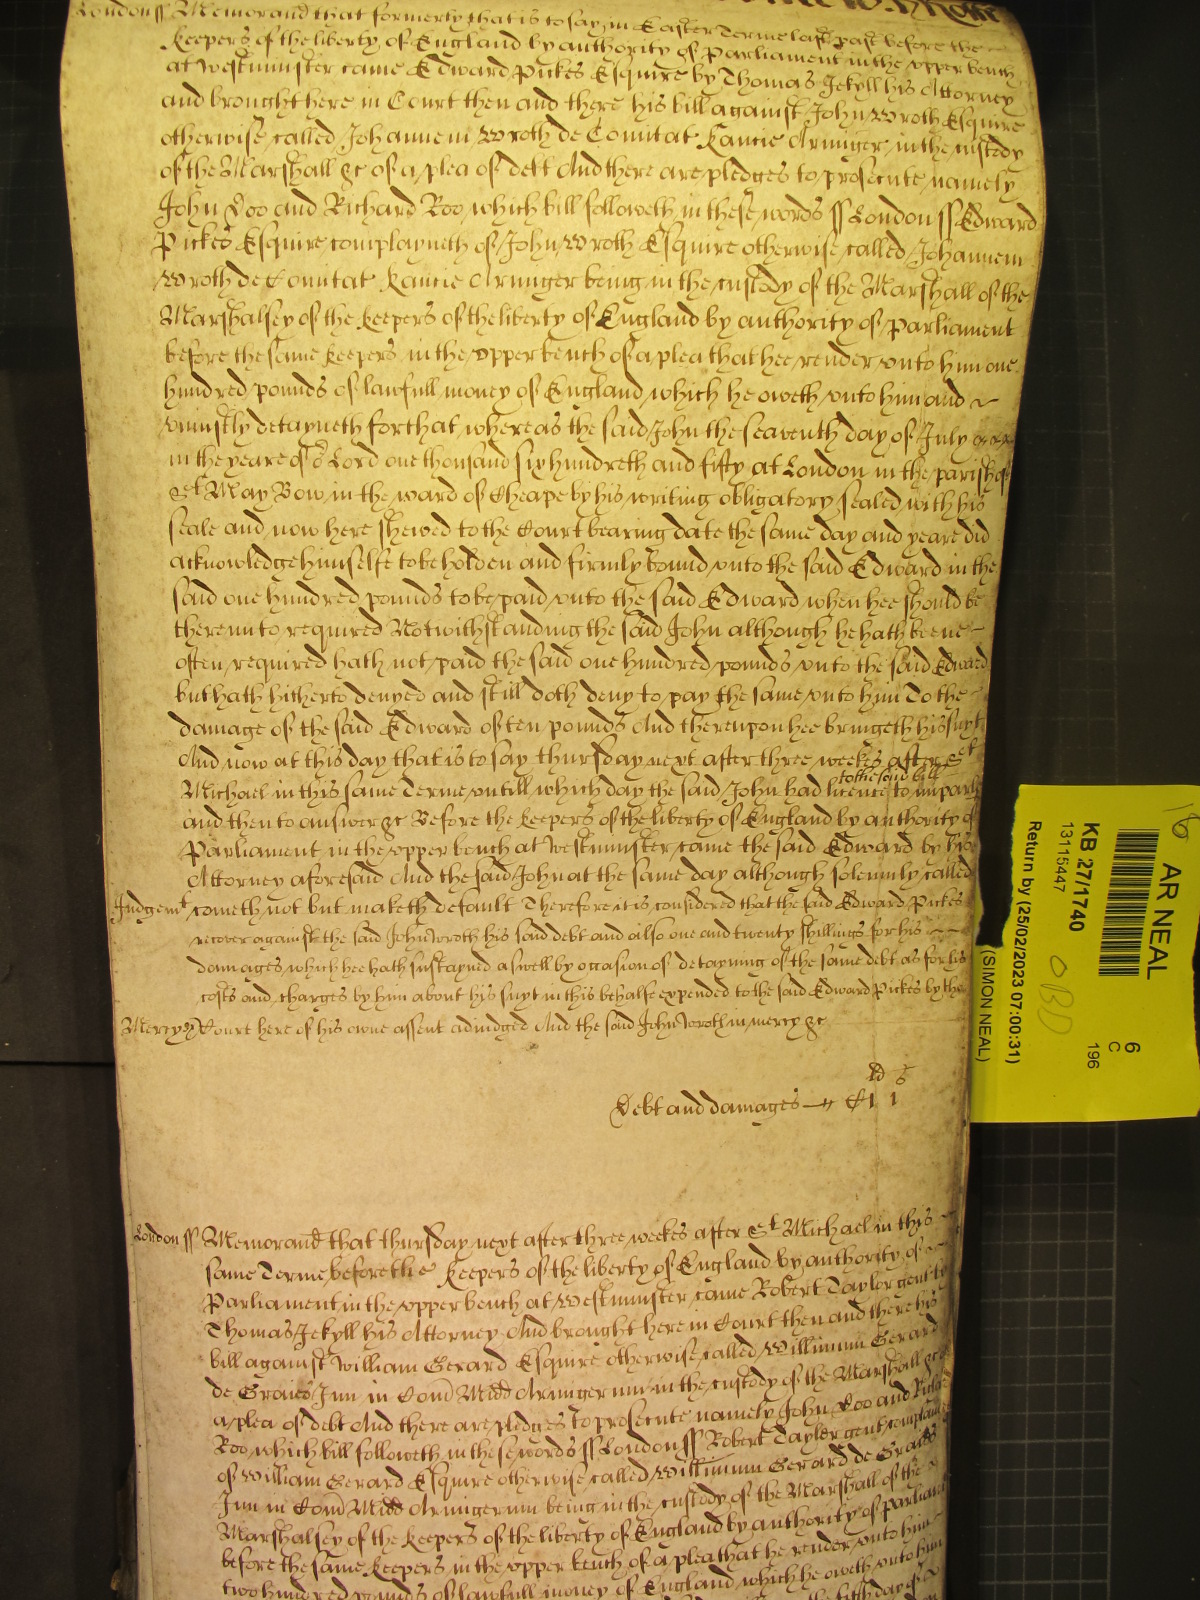 London ss Memorand that formerly that is to say in Easter Terme last past before the
Keepers of the liberty of England by authority of Parliament in the vpper bench
at Westminster came Edward Pickes Esquire by Thomas Jekyll his Attorney
and brought here in Court then and there his bill against John Wroth Esquire
otherwise called Johannem Wroth de Comitat Kancie Armiger in the custody
of the Marshall &c of a plea of debt And there are pledges to prosecute namely
John Doo and Richard Roo which bill followeth in these words ss London ss Edward
Pickes Esquire complayneth of John Wroth Esquire otherwise called Johannem
Wroth de Comitat Kancie Armiger being in the custody of the Marshall of the
Marshalsey of the Keepers of the liberty of England by authority of Parliament
before the same Keepers in the vpper bench of a plea that hee render vnto him one
hundred pounds of lawfull money of England which he oweth vnto him and
vniustly detayneth for that whereas the said John the seaventh day of July
in the yeare of o Lord one thousand six hundreth and fifty at London in the parish of
St May Bow in the ward of Cheape by his writing obligatory sealed with his
seale and now here shewed to the Court bearing date the same day and yeare did
acknowledge himselfe to be holden and firmly bound vnto the said Edward in the
said one hundred pounds to be paid vnto the said Edward when hee should be
therevnto required Notwithstanding the said John although he hath beene
often required hath not paid the said one hundred pounds vnto the said Edward
but hath hitherto denyed and still doth deny to pay the same vnto him To the
damage of the said Edward of ten pounds And thereupon hee bringeth his suyt
And now at this day that is to say thursday next after three weekes after St
Michael in this same Terme vntill which day the said John had licence to the said bill to imparle
and then to answer &c Before the Keepers of the liberty of England by authority of
Parliament in the vpper bench at Westminster came the said Edward by his
Attorney aforesaid And the said John at the same day although solemnly called
Judgemt cometh not but maketh default Therefore it is considered that the said Edward Pickes
recover against the said John Wroth his said debt and also one and twenty shillings for his
damages which hee hath sustayned aswell by occasion of detayning of the same debt as for his
costs and charges by him about his suyt in this behalfe expended to the said Edward Pickes by the
Mercy Court here of his owne assent adiudged And the said John Wroth in mercy &c
Debt and damages Cli 1s
London ss Memorand that thursday next after three weekes after St Michael in this
same Terme before the Keepers of the liberty of England by authority of
Parliament in the vpper bench at Westminster came Robert Taylor gent by
Thomas Jekyll his Attorney And brought here in Court then and there his
bill against William Gerard Esquire otherwise called Willimum Gerard
de Graies Inn in Com Midd Armigerum in the custody of the Marshall &c of
a plea of debt And there are pledges to prosecute namely John Doo and Richard
Roo which bill followeth in these words ss London ss Robert Taylor gent complaineth
of William Gerard Esquire otherwise called Willimum Gerard de Graies
Inn in Com Midd Armigerum being in the custody of the Marshall of the
Marshalsey of the Keepers of the liberty of England by authority of Parliament
before the same Keepers in the vpper bench of a plea that he render vnto him
two hundred pounds of lawfull money of England which he oweth vnto him
the fifth day of
16
AR NEAL
KB 27/1740
13115447
Return by (25/02/2023 07:00:31)
(SIMON NEAL)
6
C
196
OBD